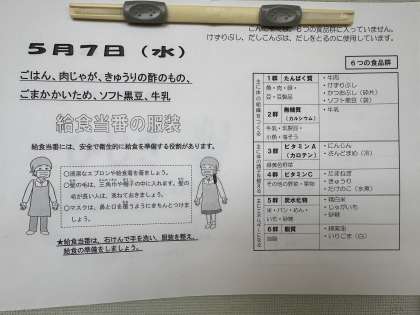 けずりぶし、だしこんぶは、だしをとるのに使用しています。
5月7日（水）
ごはん、肉じゃが、きゅうりの酢のもの、
ごまかかいため、ソフト黒豆、牛乳
給食当番の服装
給食当番には、安全で衛生的に給食を準備する役割があります。
○清潔なエプロンや給食着を着ましょう。
○髪の毛は、三角巾や帽子の中に入れます。髪の
毛が長い人は、束ねておきましょう。
○マスクは、鼻と口を覆うようにきちんとつけま
しょう。
★給食当番は、石けんで手を洗い、服装を整え、
給食の準備をしましょう。
６つの食品群
1群 たんぱく質
魚・肉・卵・
豆・豆製品
・牛肉
・けずりぶし
・かつおぶし（砕片）
・ソフト黒豆（袋）
2群 無機質
（カルシウム）
牛乳・乳製品・
小魚・海そう
・牛乳
3群 ビタミンA
（カロテン）
緑黄色野菜
・にんじん
・さんどまめ（冷）
4群 ビタミンC
その他の野菜・果物
・たまねぎ
・きゅうり
・たけのこ（水煮）
5群 炭水化物
米・パン・めん・
いも・砂糖
・精白米
・じゃがいも
・砂糖
6群 脂質
油脂
・綿実油
・いりごま（白）